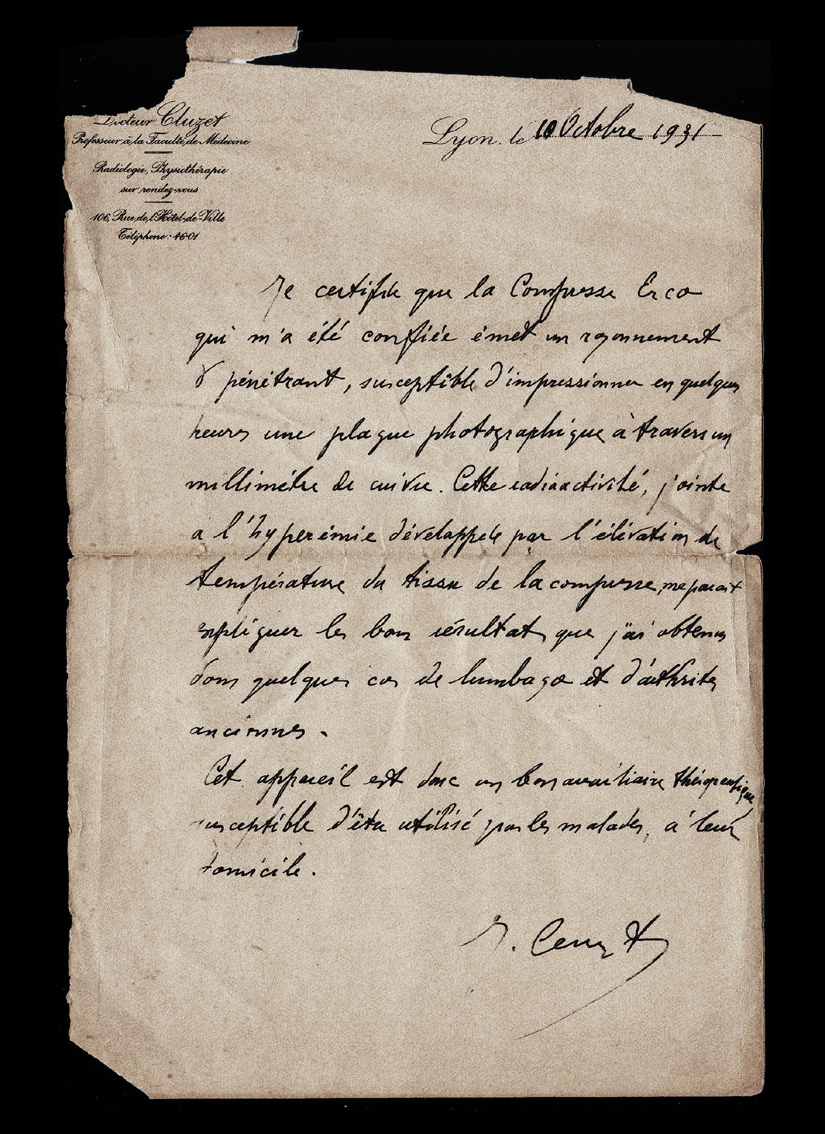 Docteur Cluzet
Professeur à la Faculté de Médecine
Radiologie, Physiothérapie
sur rendez-vous
106, Rue de l'Hôtel-de-Ville
Téléphone : 46-01
Lyon, le 10 Octobre 1931
Je certifie que la Compresse Erco
qui m'a été confiée émet un rayonnement
γ pénétrant, susceptible d'impressionner en quelques
heures une plaque photographique à travers un
millimètre de cuivre. Cette radioactivité, jointe
a l'hyperémie développée par l'élévation de
température du tissu de la compresse, me parait
expliquer les bons résultats que j'ai obtenus
dans quelques cas de lumbago et d'arthrites
anciennes.
Cet appareil est donc un bon auxiliaire thérapeutique
susceptible d'être utilisé par les malades, à leur
domicile.
J. Cluzet